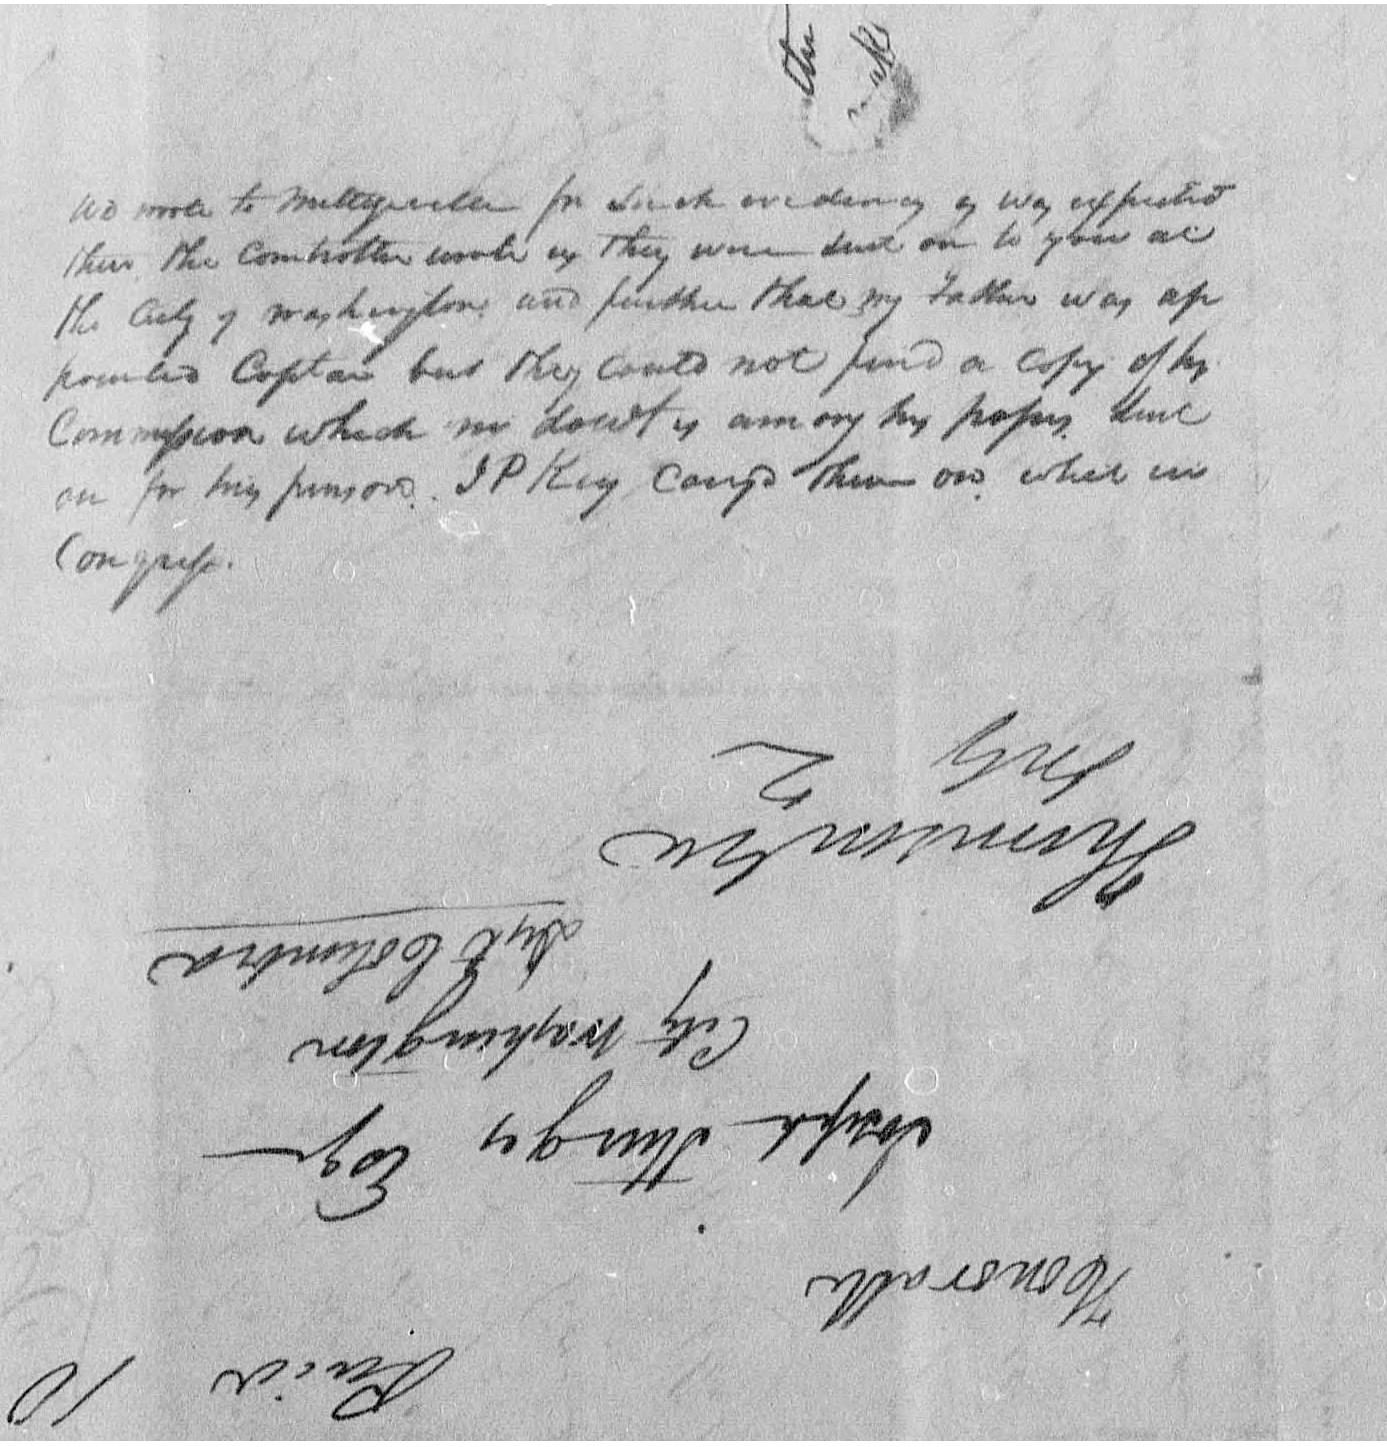 We wrote to Milledgeville for such evidence as was expected
there. The Comtroller wrote us they were sent on to you at
the City of Washington and further that my Father was ap
pointed Captain but they could not find a copy of his
Commission which no doubt is among his papers sent
on for his pension. J P King carry'd them on while in
Congress.
July 2
Paid 10
Honorable
Joseph Sturges Esqr
City Washington
Dist Columbia